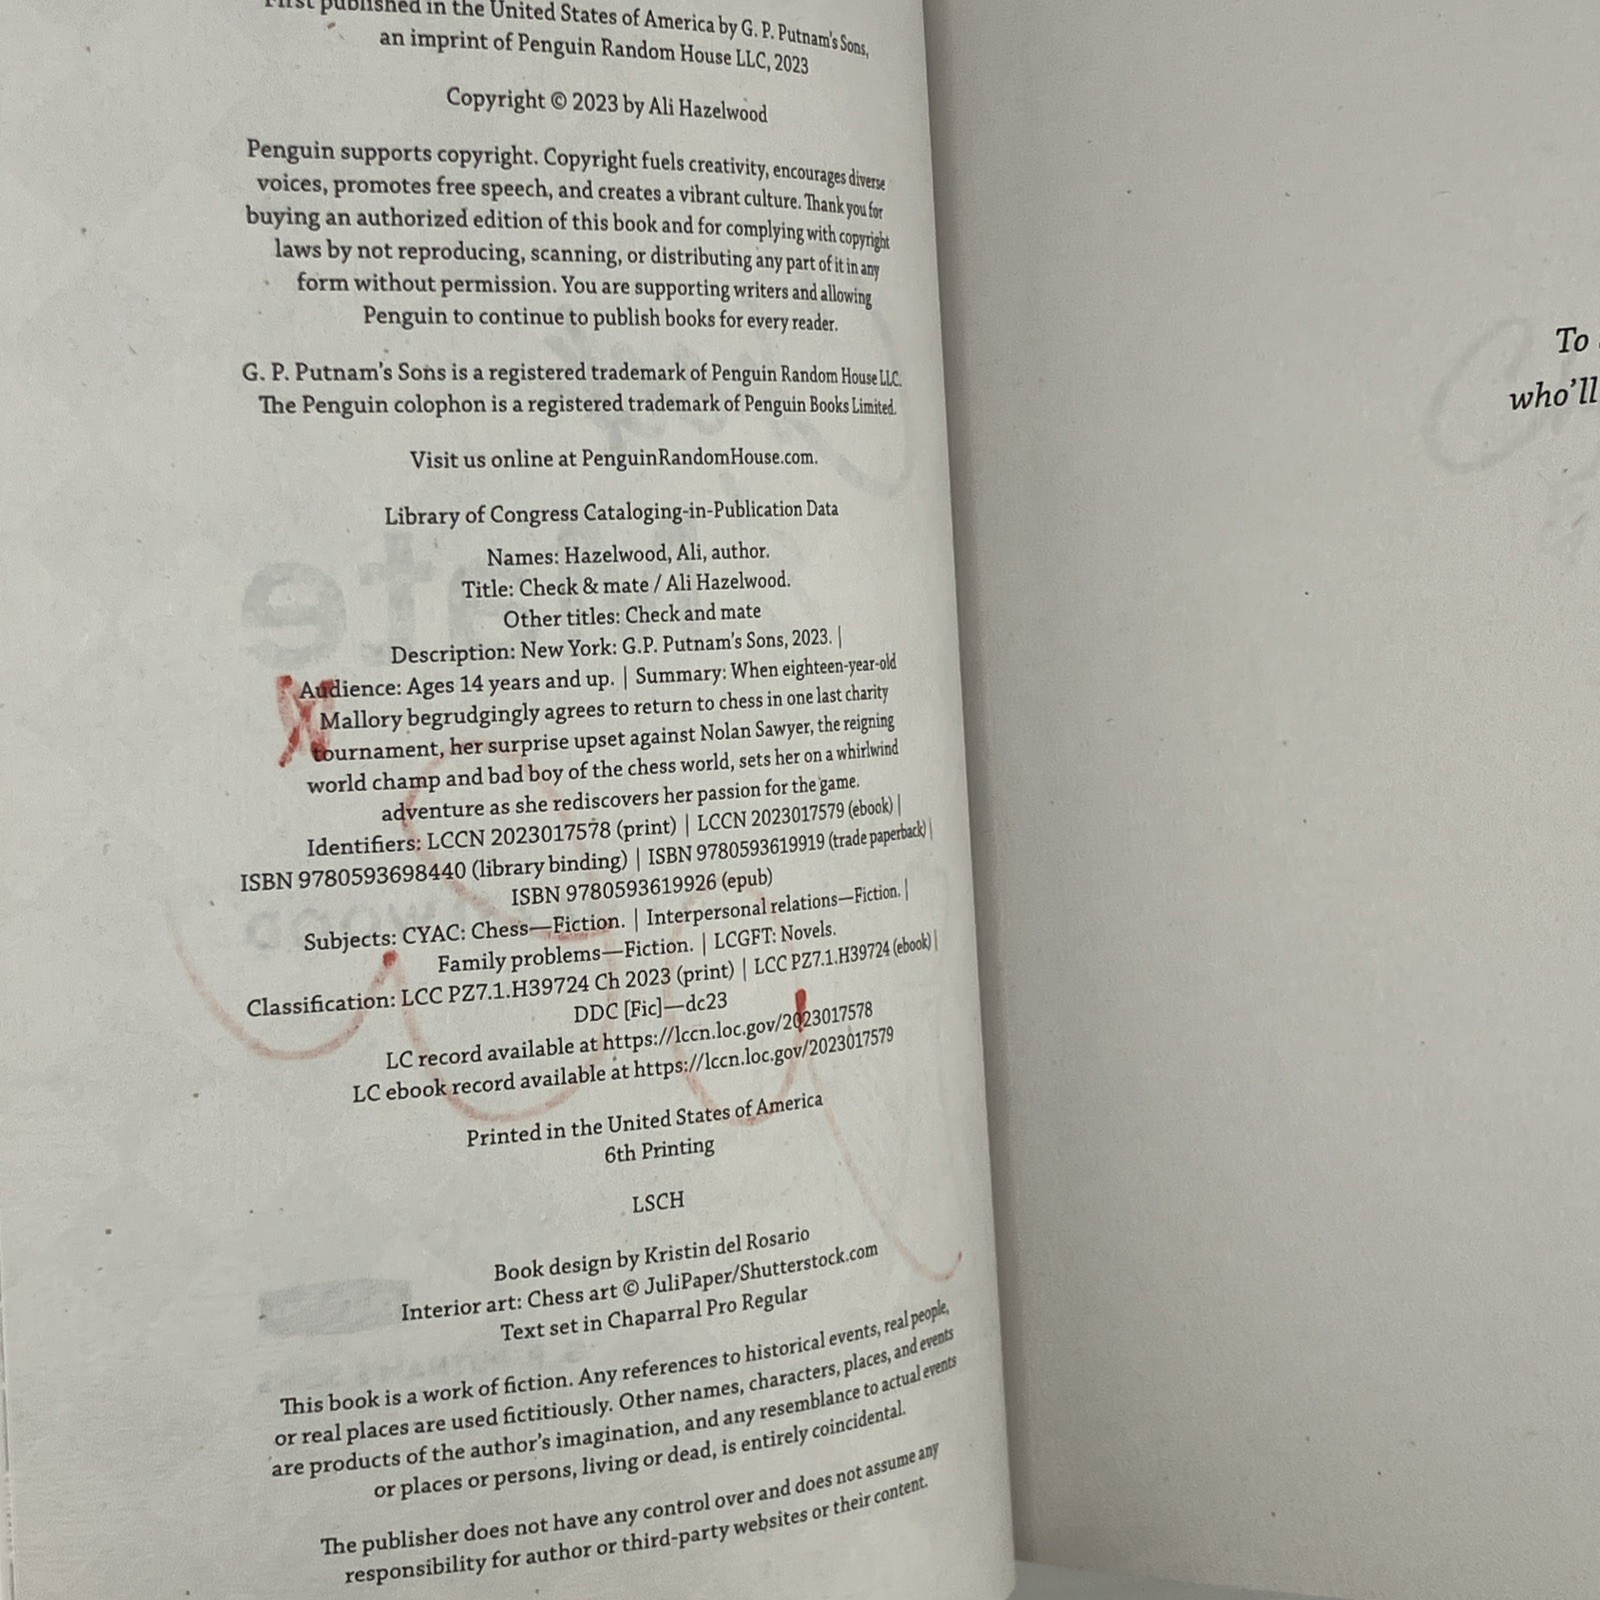 First published in the United States of America by G. P. Putnam's Sons,
an imprint of Penguin Random House LLC, 2023
Copyright © 2023 by Ali Hazelwood
Penguin supports copyright. Copyright fuels creativity, encourages diverse
voices, promotes free speech, and creates a vibrant culture. Thank you for
buying an authorized edition of this book and for complying with copyright
laws by not reproducing, scanning, or distributing any part of it in any
form without permission. You are supporting writers and allowing
Penguin to continue to publish books for every reader.
G. P. Putnam's Sons is a registered trademark of Penguin Random House LLC.
The Penguin colophon is a registered trademark of Penguin Books Limited.
Visit us online at PenguinRandomHouse.com.
Library of Congress Cataloging-in-Publication Data
Names: Hazelwood, Ali, author.
Title: Check & mate / Ali Hazelwood.
Other titles: Check and mate
Description: New York: G.P. Putnam's Sons, 2023. |
Audience: Ages 14 years and up. | Summary: When eighteen-year-old
Mallory begrudgingly agrees to return to chess in one last charity
tournament, her surprise upset against Nolan Sawyer, the reigning
world champ and bad boy of the chess world, sets her on a whirlwind
adventure as she rediscovers her passion for the game.
Identifiers: LCCN 2023017578 (print) | LCCN 2023017579 (ebook) |
ISBN 9780593698440 (library binding) | ISBN 9780593619919 (trade paperback) |
ISBN 9780593619926 (epub)
Subjects: CYAC: Chess—Fiction. | Interpersonal relations—Fiction. |
Family problems—Fiction. | LCGFT: Novels.
Classification: LCC PZ7.1.H39724 Ch 2023 (print) | LCC PZ7.1.H39724 (ebook) |
DDC [Fic]—dc23
LC record available at https://lccn.loc.gov/2023017578
LC ebook record available at https://lccn.loc.gov/2023017579
Printed in the United States of America
6th Printing
LSCH
Book design by Kristin del Rosario
Interior art: Chess art © JuliPaper/Shutterstock.com
Text set in Chaparral Pro Regular
This book is a work of fiction. Any references to historical events, real people,
or real places are used fictitiously. Other names, characters, places, and events
are products of the author's imagination, and any resemblance to actual events
or places or persons, living or dead, is entirely coincidental.
The publisher does not have any control over and does not assume any
responsibility for author or third-party websites or their content.
To
who'll